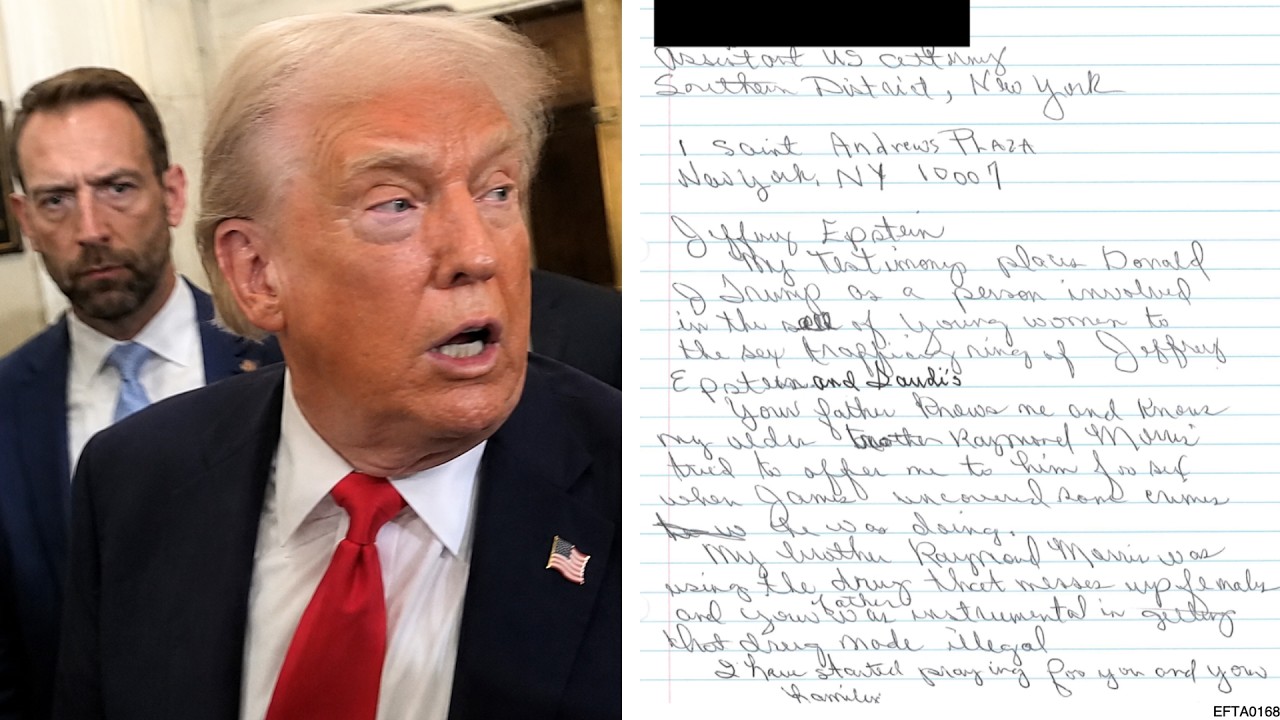 Assistant US attorney
Southern District, New York
1 Saint Andrews Plaza
New York, NY 10007
Jeffrey Epstein
My testimony places Donald
J Trump as a person involved
in the sell of young women to
the sex trafficing ring of Jeffrey
Epstein and Saudi's
Your father knows me and knows
my older brother Raymond Morris
tried to offer me to him for sex
when James uncovered some crimes
he was doing.
My brother Raymond Morris was
using the drug that messes up females
and your father was instrumental in getting
that drug made illegal
I have started praying for you and your
families
EFTA0168